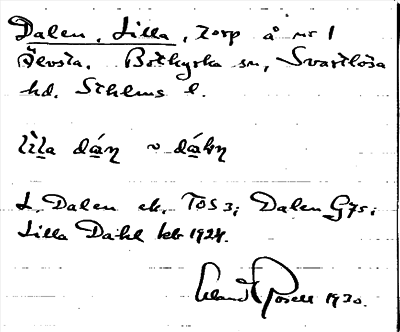 Dalen, Lilla, torp å nr 1
Älvsta. Botkyrka sn, Svartlösa
hd. Sthlms l.
lìla dáṇ ~ dákṇ
L. Dalen ek. TOS 3; Dalen G75;
Lilla Dahl kbr 1928.
Erland Rosell 1930.